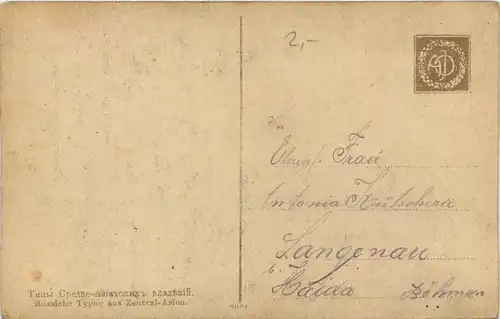 2,-
An
Ehrwf. Frau
Antonia Kutschera
Langenau
b. Haida Böhmen
Типы Средне-азіатскихъ владѣній.
Russiche Typen aus Zentral-Asien.